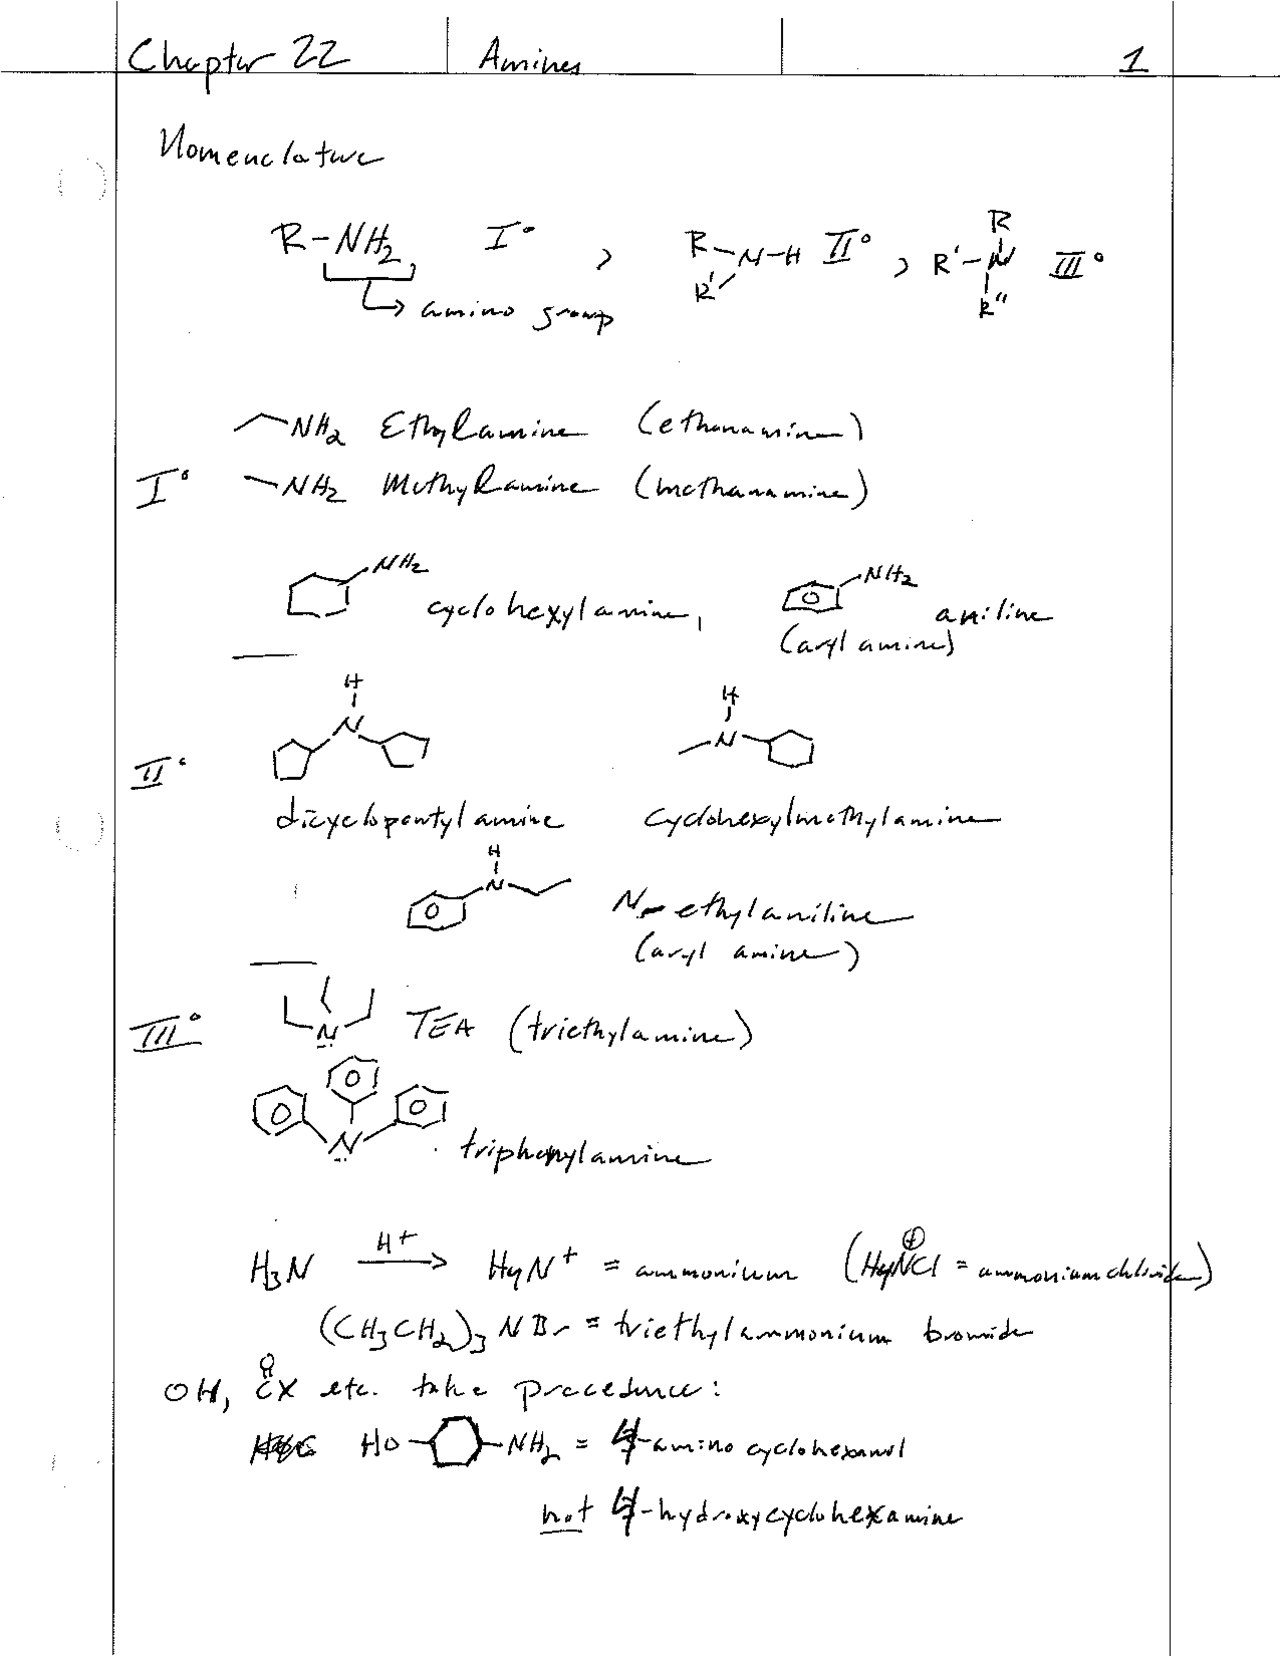 Chapter 22 Amines 1
Nomenclature
R-NH2 I° , R R' N-H II° , R R'-N R'' III°
amino group
NH2 Ethylamine (ethanamine)
I° NH2 Methylamine (methanamine)
NH2 cyclohexylamine, NH2 aniline
(aryl amine)
H N H N
II°
dicyclopentylamine cyclohexylmethylamine
H N N-ethylaniline
(aryl amine)
III° N TEA (triethylamine)
N triphenylamine
H3N H+ → H4N+ = ammonium (H4N⊕Cl = ammonium chloride)
(CH3CH2)3 N Br = triethylammonium bromide
OH, O CX etc. take precedence:
HO NH2 = 4-aminocyclohexanol
not 4-hydroxycyclohexamine